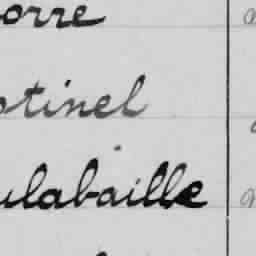 orre
otinel
ulabaille